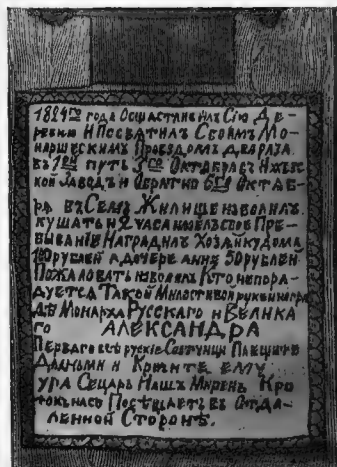 1824го года Осщастливилъ Сiю Де-
ревню И Посѣтилъ Своимъ Мо-
наршескимъ Проездомъ двараза.
въ 1ой путь 3го Октября съ Ижъев-
ской Заводъ и Обратно 6го Октяб-
ря въ Семъ Жилище изволилъ
кушать и 2 часа имелъ свое Пре-
бывание Наградилъ Хозяйку Дома
100 рублей а дочере анне 50 рублей
Пожаловать изволилъ Кто непора-
дуется Такой Милостивой руке и награ
дѣ Монарха Русскаго и Велика
го АЛЕКСАНДРА
Перваго всѣ рускiе Плещите
Дланьми и Кричите ему
ура Сецарь Нашъ Миренъ Кро
токъ насъ Посѣщаетъ въ Отда-
ленной Сторонѣ.